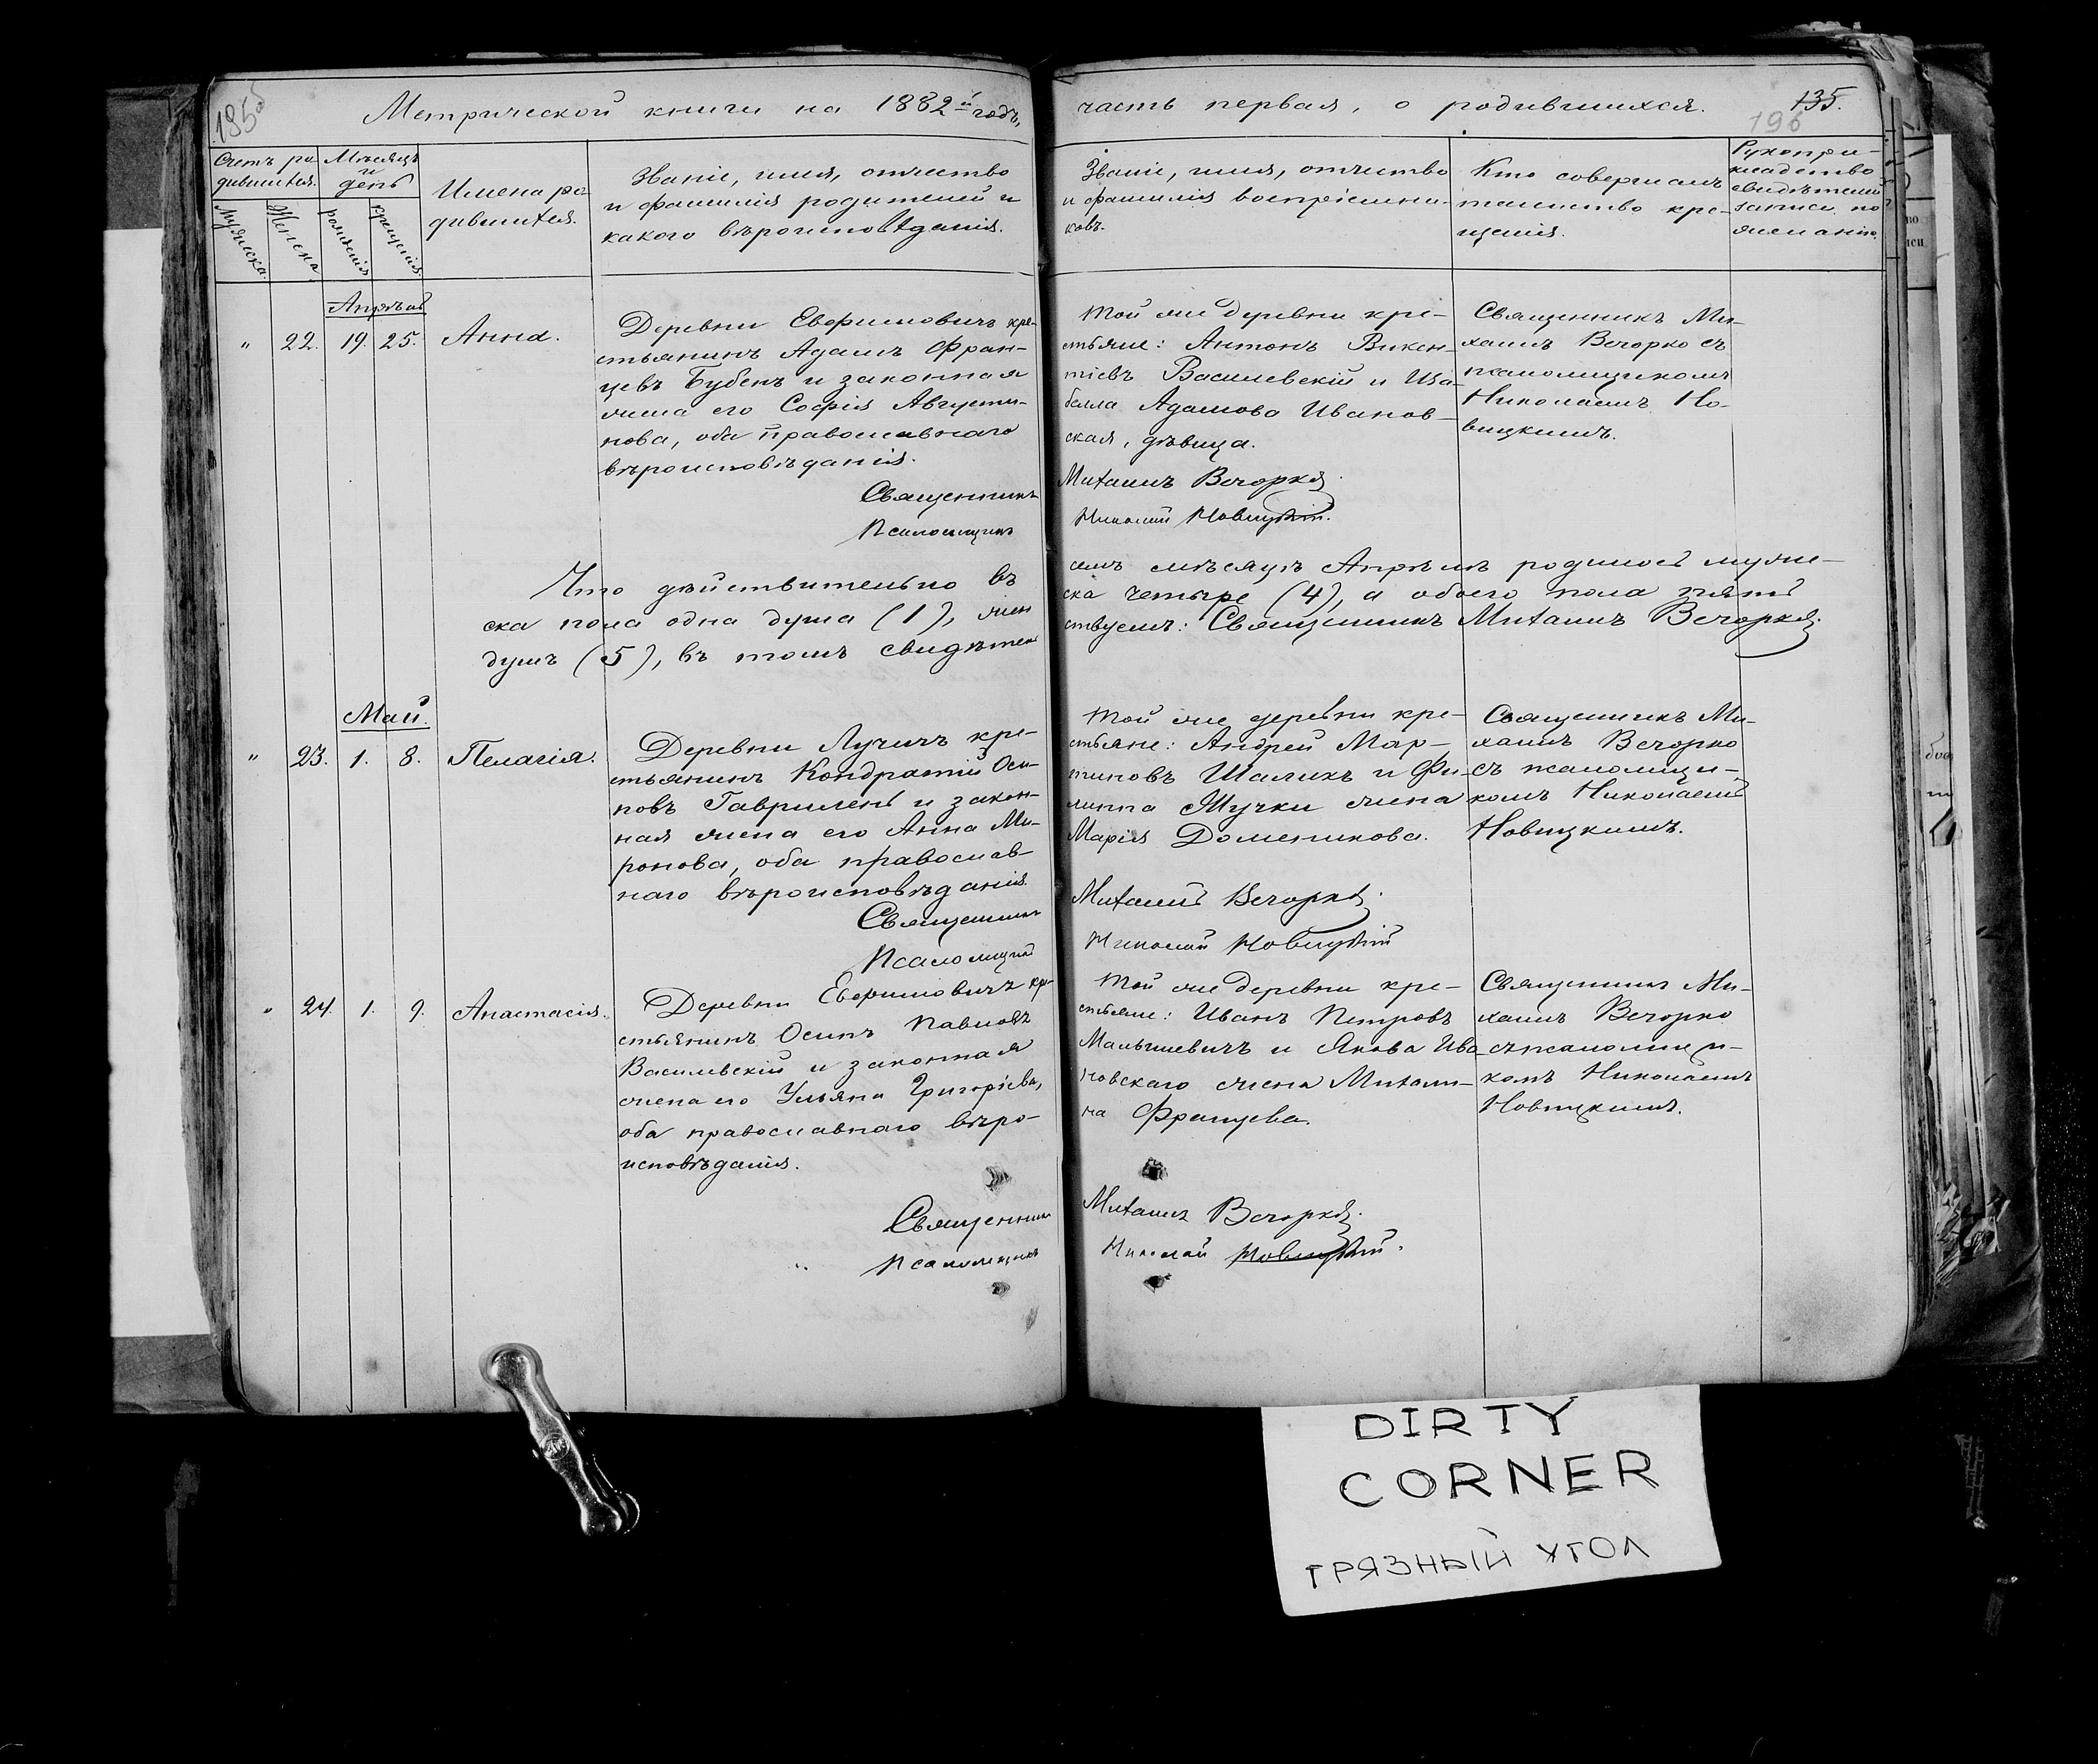 195
Метрической книги на 1882й годъ,
часть первая, о родившихся.
135.
196
Счетъ ро-
дившихся.
Мѣсяцъ
и
день
Мужеска.
Женска.
рожденія
крещенія.
Имена ро-
дившихся.
Званіе, имя, отчество
и фамилія родителей и
какого вѣроисповѣданія.
Званіе, имя, отчество
и фамилія воспріемни-
ковъ.
Кто совершалъ
таинство кре-
щенія.
Рукопри-
кладство
свидѣтелей
записи по
желанію.
Апрѣль
" 22. 19. 25. Анна.
Деревни Евфимовичъ кре-
стьянинъ Адамъ Фран-
цевъ Бубенъ и законная
жена его Софія Августи-
нова, оба православнаго
вѣроисповѣданія.
Священникъ
Псаломщикъ
Той же деревни кре-
стьяне: Антонъ Викен-
тіевъ Василевскій и Иза-
белла Адамова Иванов-
ская, дѣвица.
Михаилъ Вечорко.
Николай Новицкій.
Священникъ Ми-
хаилъ Вечорко съ
псаломщикомъ
Николаемъ Но-
вицкимъ.
Что дѣйствительно въ
ска пола одна душа (1), жен
душъ (5), въ томъ свидѣтель
семъ мѣсяцѣ Апрѣлѣ родилось муже-
ска четыре (4), а обоего пола пять
ствуемъ: Священникъ Михаилъ Вечорко.
Май.
" 23. 1. 8. Пелагія.
Деревни Лучичъ кре-
стьянинъ Кондратій Оси-
повъ Гаврилень и закон-
ная жена его Анна Ми-
ронова, оба православ-
наго вѣроисповѣданія.
Священникъ
Псаломщикъ
Той же деревни кре-
стьяне: Андрей Мар-
тиновъ Шаликъ и Фи-
липпа Жучки жена
Марія Доменикова.
Михаилъ Вечорко.
Николай Новицкій
Священникъ Ми-
хаилъ Вечорко
съ псаломщи-
комъ Николаемъ
Новицкимъ.
" 24. 1. 9. Анастасія.
Деревни Евфимовичъ кре-
стьянинъ Осипъ Павловъ
Васильвскій и законная
жена его Ульяна Григорьева,
оба православнаго вѣро-
исповѣданія.
Священникъ
Псаломщикъ
Той же деревни кре-
стьяне: Иванъ Петровъ
Малышевичъ и Якова Ива-
новскаго жена Михали-
на Францева.
Михаилъ Вечорко.
Николай Новицкій.
Священникъ Ми-
хаилъ Вечорко
съ псаломщи-
комъ Николаемъ
Новицкимъ.
DIRTY
CORNER
ГРЯЗНЫЙ УГОЛ